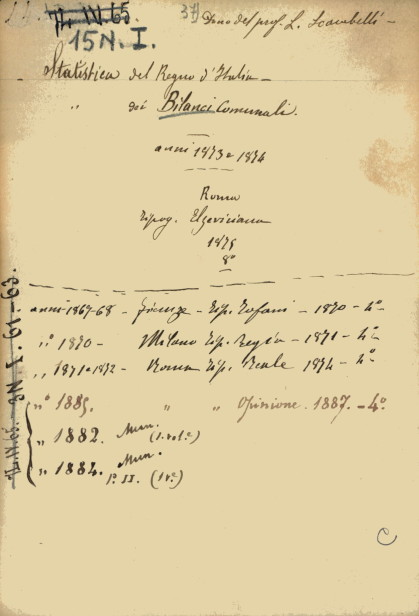 IV. 65
15 N. I.
Dono del prof. L. Scarabelli -
Statistica del Regno d'Italia -
" dei Bilanci Comunali.
anni 1873 e 1874
Roma
tipog. Elzeviriana
1875
8°
anni 1867-68 - Firenze - tip. Tofani - 1870 - 4°
" 1870 - Milano tip. regia - 1871 - 4°
" 1871 e 1872 - Roma tip. Reale 1874 - 4°
" 1885. " " Opinione. 1887. - 4°
" 1882. (1. vol.e)
" 1884. P. II. (1 v.e)
3N. I. 61-63.
C